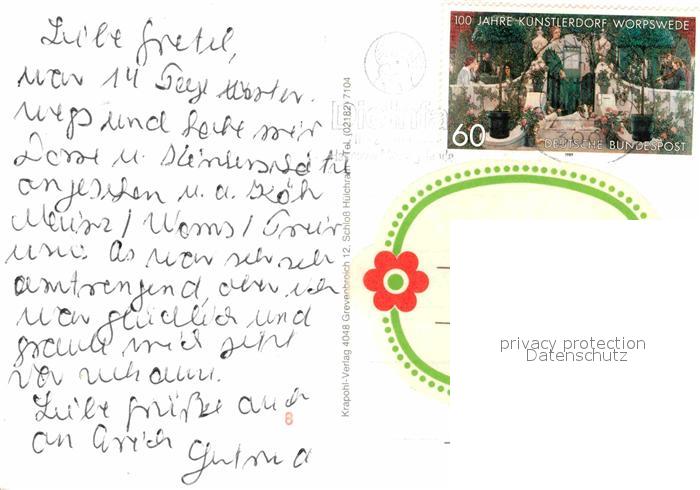 Liebe Gretel,
war 14 Tage
wegs und habe mir
Dome u.
angesehen u. a. Köln
Mainz / Worms / Trier
usw. Es war sehr sehr
anstrengend, aber ich
war glücklich und
graute mich jetzt
vor
Liebe Grüße auch
an
8
Krapohl-Verlag 4048 Grevenbroich 12, Schloß Hülchrath, Tel. (02182) 7104
100 JAHRE KÜNSTLERDORF WORPSWEDE
60
DEUTSCHE BUNDESPOST
1989
privacy protection
Datenschutz